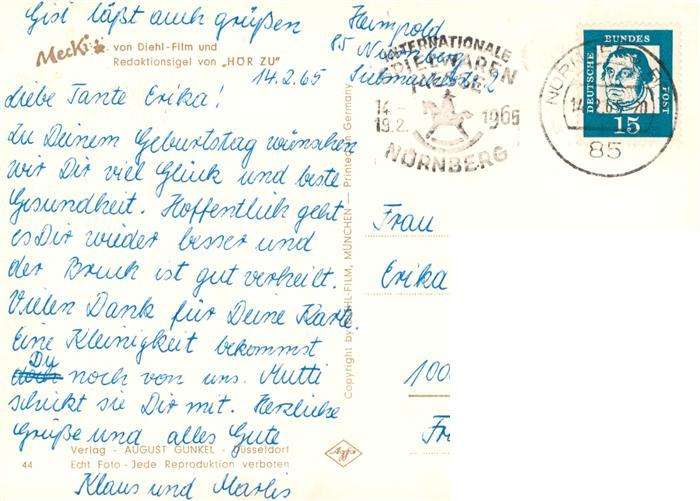 Gisl läßt auch grüßen
Mecki von Diehl-Film und
Redaktionsigel von „HÖR ZU"
14.2.65
Liebe Tante Erika!
Zu Deinem Geburtstag wünschen
wir Dir viel Glück und beste
Gesundheit. Hoffentlich geht
es Dir wieder besser und
der Bruch ist gut verheilt.
Vielen Dank für Deine Karte.
Eine Kleinigkeit bekommst
Du
doch noch von uns. Mutti
schickt sie Dir mit. Herzliche
Grüße und alles Gute
Klaus und Marlis
Verlag - AUGUST GUNKEL - Düsseldorf
44 Echt Foto - Jede Reproduktion verboten
Copyright by DIEHL-FILM, MÜNCHEN — Printed in Germany
Agfa
Heimpold
85 Nürnberg
INTERNATIONALE
SPIELWAREN
MESSE
14.-
19.2. 1965
NÜRNBERG
NÜRNBERG
85
DEUTSCHE BUNDESPOST
15
Frau
Erika
100